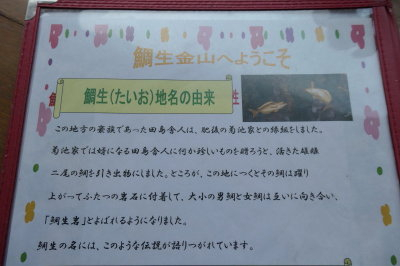 鯛生金山へようこそ
鯛生(たいお)地名の由来
この地方の豪族であった田島舎人は、肥後の菊池家との縁組をしました。
菊池家では婿になる田島舎人に何か珍しいものを贈ろうと、活きた雄雌
二尾の鯛を引き出物にしました。ところが、この地につくとその鯛は躍り
上がってふたつの岩石に付着して、大小の男鯛と女鯛は互いに向き合い、
「鯛生岩」とよばれるようになりました。
鯛生の名には、このような伝説が語りつがれています。